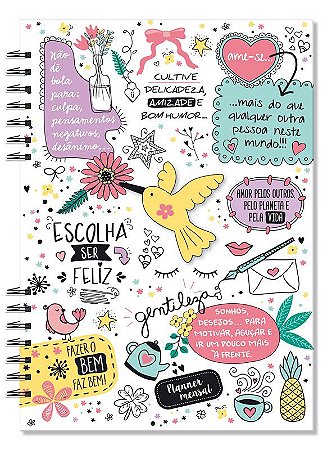 Não
dê
bola
para:
culpa,
pensamentos
negativos,
desânimo...
CULTIVE
DELICADEZA,
AMIZADE E
BOM HUMOR...
ame-se...
...mais do que
qualquer outra
pessoa neste
mundo!!!
AMOR PELOS OUTROS,
PELO PLANETA E
PELA VIDA
ESCOLHA
SER
FELIZ
gentileza
SONHOS,
DESEJOS... PARA
MOTIVAR, AGUÇAR E
IR UM POUCO MAIS
À FRENTE.
FAZER O
BEM
FAZ BEM!
Planner
mensal